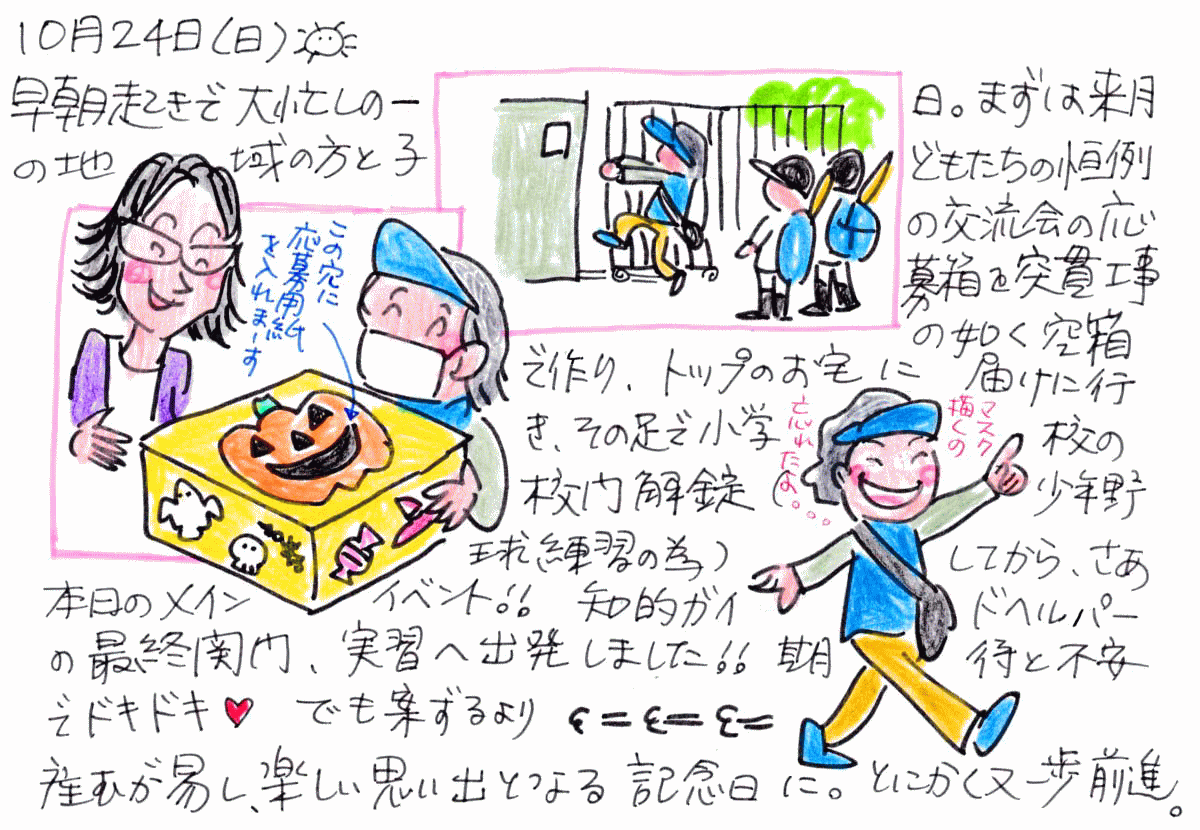 10月24日(日)
早朝起きで大忙しの一日。まずは来月
の地域の方と子どもたちの恒例
の交流会の応
募箱を突貫工事
の如く空箱
で作り、トップのお宅に届けに行
き、その足で小学校の
校内解錠(少年野
球練習の為)してから、さあ
本日のメインイベント!! 知的ガイドヘルパー
の最終関門、実習へ出発しました!! 期待と不安
でドキドキ♥ でも案ずるより
産むが易し、楽しい思い出となる記念日に。とにかく又一歩前進。
この穴に
応募用紙
を入れまーす
マスク
描くの
忘れたよ。。。